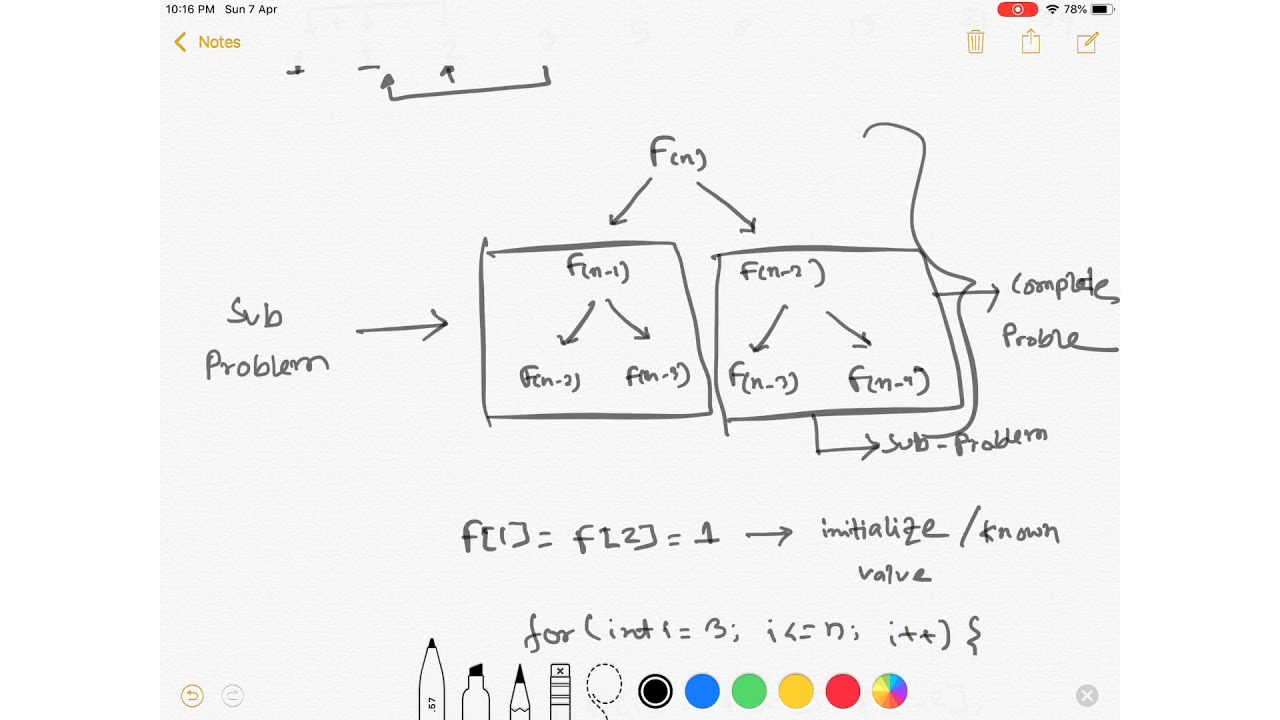 10:16 PM Sun 7 Apr
78%
Notes
F(n)
F(n-1)
F(n-2)
Sub
Problem
Complete
Proble
F(n-2)
F(n-3)
F(n-3)
F(n-4)
Sub-Problem
f[1] = f[2] = 1 → initialize / known
value
for (int i = 3; i <= n; i++) {
.57